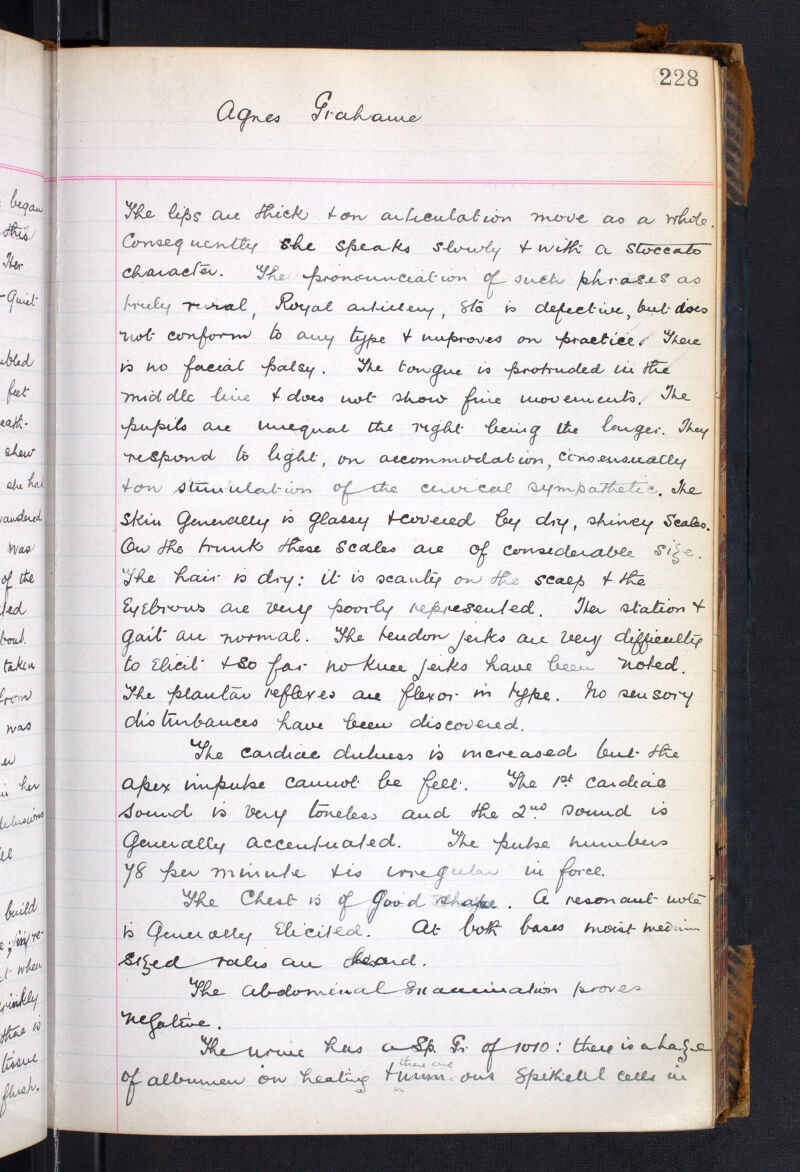 228
Agnes Grahame
The lips are thick & on articulation move as a whole.
Consequently she speaks slowly & with a stoccato
character. The pronounciation of such phrases as
truly rural, Royal artillery, etc is defective, but does
not conform to any type & improves on practice. There
is no facial palsy. The tongue is protruded in the
middle line & does not show fine movements. The
pupils are unequal the right being the larger. They
respond to light, on accommodation, consensually
& on stimulation of the cervical sympathetic. The
skin generally is glassy & covered by dry, shiney scales.
On the trunk these scales are of considerable size.
The hair is dry: it is scanty on the scalp & the
Eyebrows are very poorly represented. Her station &
gait are normal. The tendon jerks are very difficulty
to elicit & so far no knee jerks have been noted.
The plantar reflexes are flexor in type. No sensory
disturbances have been discovered.
The cardiac dulness is increased but the
apex impulse cannot be felt. The 1st cardiac
sound is very toneless and the 2nd sound is
generally accentuated. The pulse numbers
78 per minute & is irregular in force.
The Chest is of good shape. A resonant note
is generally elicited. At both bases moist medium
sized rales are heard.
The abdominal examination proves
negative.
The urine has a Sp. Gr. of 1010: there is a haze
there are
of albumen on heating & numerous Epithelial cells in
began
this
Her
Quiet
feet
shew
she had
was
of the
taken
from
was
in her
delusions
build
when
tissue
flush.